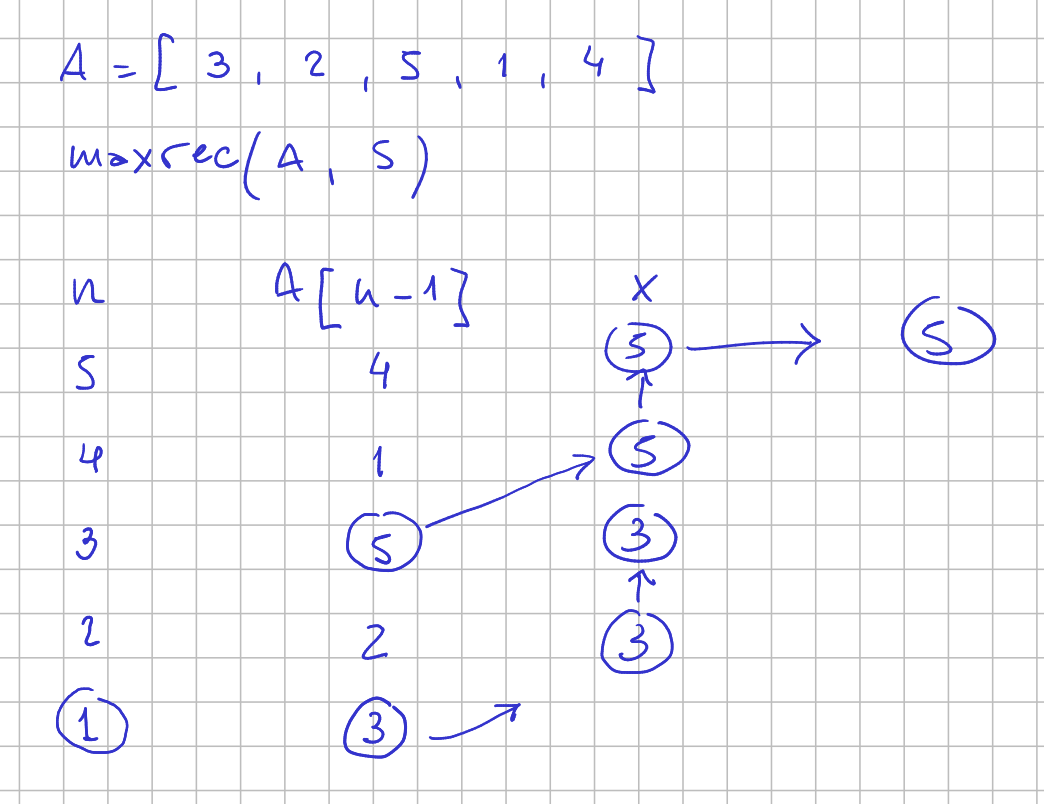 A = [ 3 , 2 , 5 , 1 , 4 ]
maxrec(A , 5)
n A[n-1] x
5 4 5 → 5
4 1 5
3 5 3
2 2 3
1 3